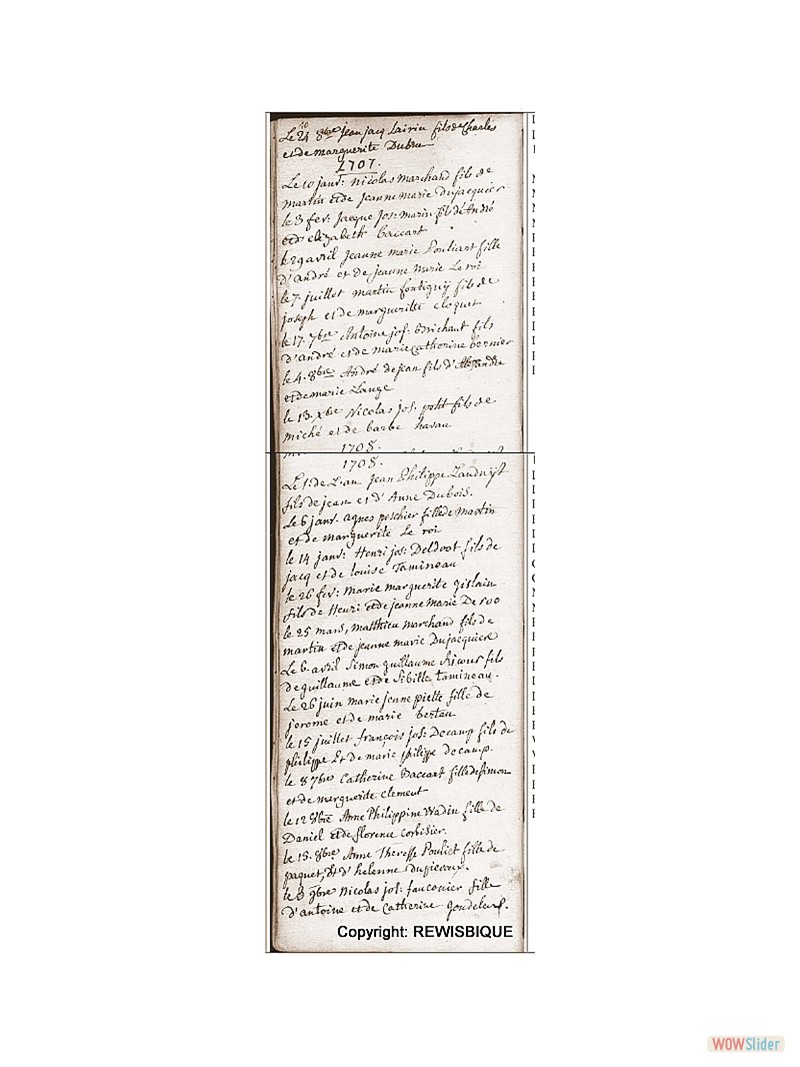 Le 24 8bre jean jacq Lairin fils de Charles
et de marguerite Dubru
1707.
Le 10 janv: nicolas marchand fils de
martin et de jeanne marie dujacquier
le 3 fev: jacque jos: marin fils de André
et d'elizabeth baccart
le 29 avril jeanne marie Pouliart fille
d'andré et de jeanne marie Le roi
le 7 juillet martin fontigny fils de
joseph et de marguerite cloquet
le 17. 7bre Antoine jos: brichaut fils
d'andré et de marie catherine bernier
le 4. 8bre André dejean fils d'Alexandre
et de marie Lange
le 13. xbre Nicolas jos. petit fils de
miché et de barbe havau
1708.
1708.
Le 1. de L'an jean Philippe Zandrijt
fils de jean et d'Anne Dubois.
Le 6 janv. agnes peschier fille de martin
et de marguerite Le roi
le 14 janv: Henri jos: Deldoot fils de
jacq et de louise Tamineau
le 26 fev: marie marguerite gislain
fils de Henri et de jeanne marie De roo
le 25 mars, matthieu marchand fils de
martin et de jeanne marie Dujacquiere
Le 6 avril Simon guillaume Ricour fils
de guillaume et de Sibille tamineau.
Le 26 juin marie jenne piette fille de
jerome et de marie bertau
le 15 juillet françois jos: Decamp fils de
philippe Et de marie philippe decamp.
le 8 7bre Catherine Baccart fille de simon
et de marguerite clement
le 12 8bre Anne Philippine Wadin fille de
Daniel et de florence Corbisier.
le 15. 8bre Anne Theresse Pouliet fille de
paquet, et d'helenne dupieroux.
le 3 9bre Nicolas jos: fauconier fille
d'antoine et de Catherine goudeleuf.
Copyright: REWISBIQUE
WOWSlider